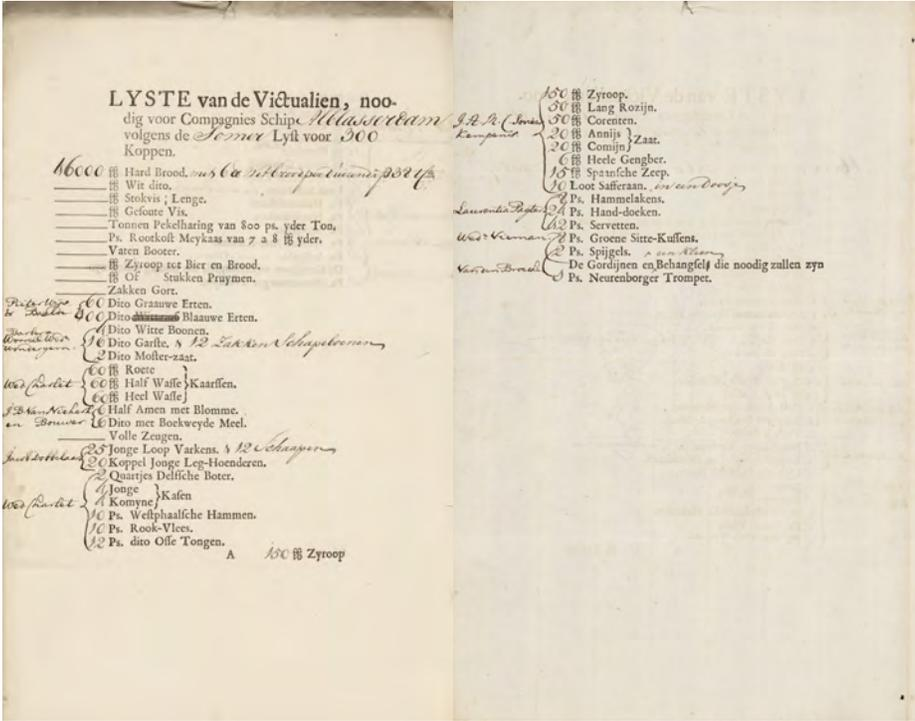 LYSTE van de Victualien, noo-
dig voor Compagnies Schip
volgens de Somer Lyst voor 300
Koppen.
46000 ℔ Hard Brood.
℔ Wit dito.
℔ Stokvis; Lenge.
℔ Gesoute Vis.
Tonnen Pekelharing van 800 ps. yder Ton.
Ps. Rootkost Meykaas van 7 a 8 ℔ yder.
Vaten Booter.
℔ Zyroop tot Bier en Brood.
℔ Of Stukken Pruymen.
Zakken Gort.
60 Dito Graauwe Erten.
Dito Blaauwe Erten.
Dito Witte Boonen.
16 Dito Garste. & 12 Zakken Schapeboonen
2 Dito Moster-zaat.
60 ℔ Roete
60 ℔ Half Wasse } Kaarssen.
60 ℔ Heel Wasse
6 Half Amen met Blomme.
6 Dito met Boekweyde Meel.
Volle Zeugen.
25 Jonge Loop Varkens. & 12 Schaapen
20 Koppel Jonge Leg-Hoenderen.
2 Quartjes Delfsche Boter.
4 Jonge
4 Komyne } Kasen
Wed Charlet
10 Ps. Westphaalsche Hammen.
10 Ps. Rook-Vlees.
12 Ps. dito Osse Tongen.
A 150 ℔ Zyroop
150 ℔ Zyroop.
50 ℔ Lang Rozijn.
50 ℔ Corenten.
20 ℔ Annijs
20 ℔ Comijn } Zaat.
6 ℔ Heele Gengber.
15 ℔ Spaansche Zeep.
10 Loot Safferaan. in een Doosje
Ps. Hammelakens.
24 Ps. Hand-doeken.
Ps. Servetten.
Ps. Groene Sitte-Kussens.
2 Ps. Spijgels.
De Gordijnen en Behangsels die noodig zullen zyn
Ps. Neurenborger Trompet.